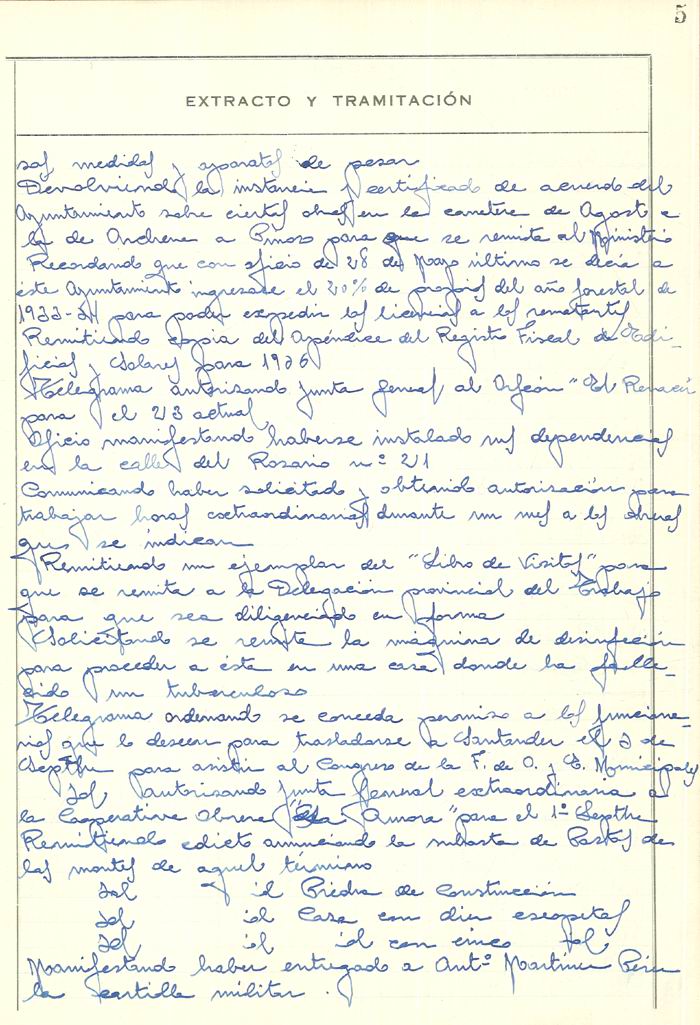 5
EXTRACTO Y TRAMITACIÓN
sas, medidas y aparatos de pesar
Devolviendo la instancia y certificado de acuerdo del
Ayuntamiento sobre ciertas obras en la carretera de Agost a
la de Archena a Pinoso para que se remita al Ministerio
Recordando que con oficio de 28 de Mayo último se decía a
éste Ayuntamiento ingresase el 20% de propios del año forestal de
1933-34 para poder expedir las licencias a los rematantes
Remitiendo copia del Apéndice del Registro Fiscal de Edi-
ficios y Solares para 1936
Telegrama autorizando junta general al Orfeón "El Renacer
para el 23 actual
Oficio manifestando haberse instalado sus dependencias
en la calle del Rosario nº 21
Comunicando haber solicitado y obtenido autorización para
trabajar horas extraordinarias durante un mes a los obreros
que se indican
Remitiendo un ejemplar del "Libro de Visitas" para
que se remita a la Delegación provincial del Trabajo
para que sea diligenciado en forma
Solicitando se remita la máquina de desinfección
para proceder a ésta en una casa donde ha falle-
cido un tuberculoso
Telegrama ordenando se conceda permiso a los funciona-
rios que lo deseen para trasladarse a Santander el 2 de
Septbre para asistir al Congreso de la F. de O. y E. Municipales
Id autorizando junta general extraordinaria a
la Cooperativa Obrera "La Aurora" para el 1º Septbre
Remitiendo edicto anunciando la subasta de Pastos de
los montes de aquel término
Id id Piedra de Construcción
Id id Caza con diez escopetas
Id id id con cinco Id
Manifestando haber entregado a Antº Martínez Pérez
la cartilla militar.